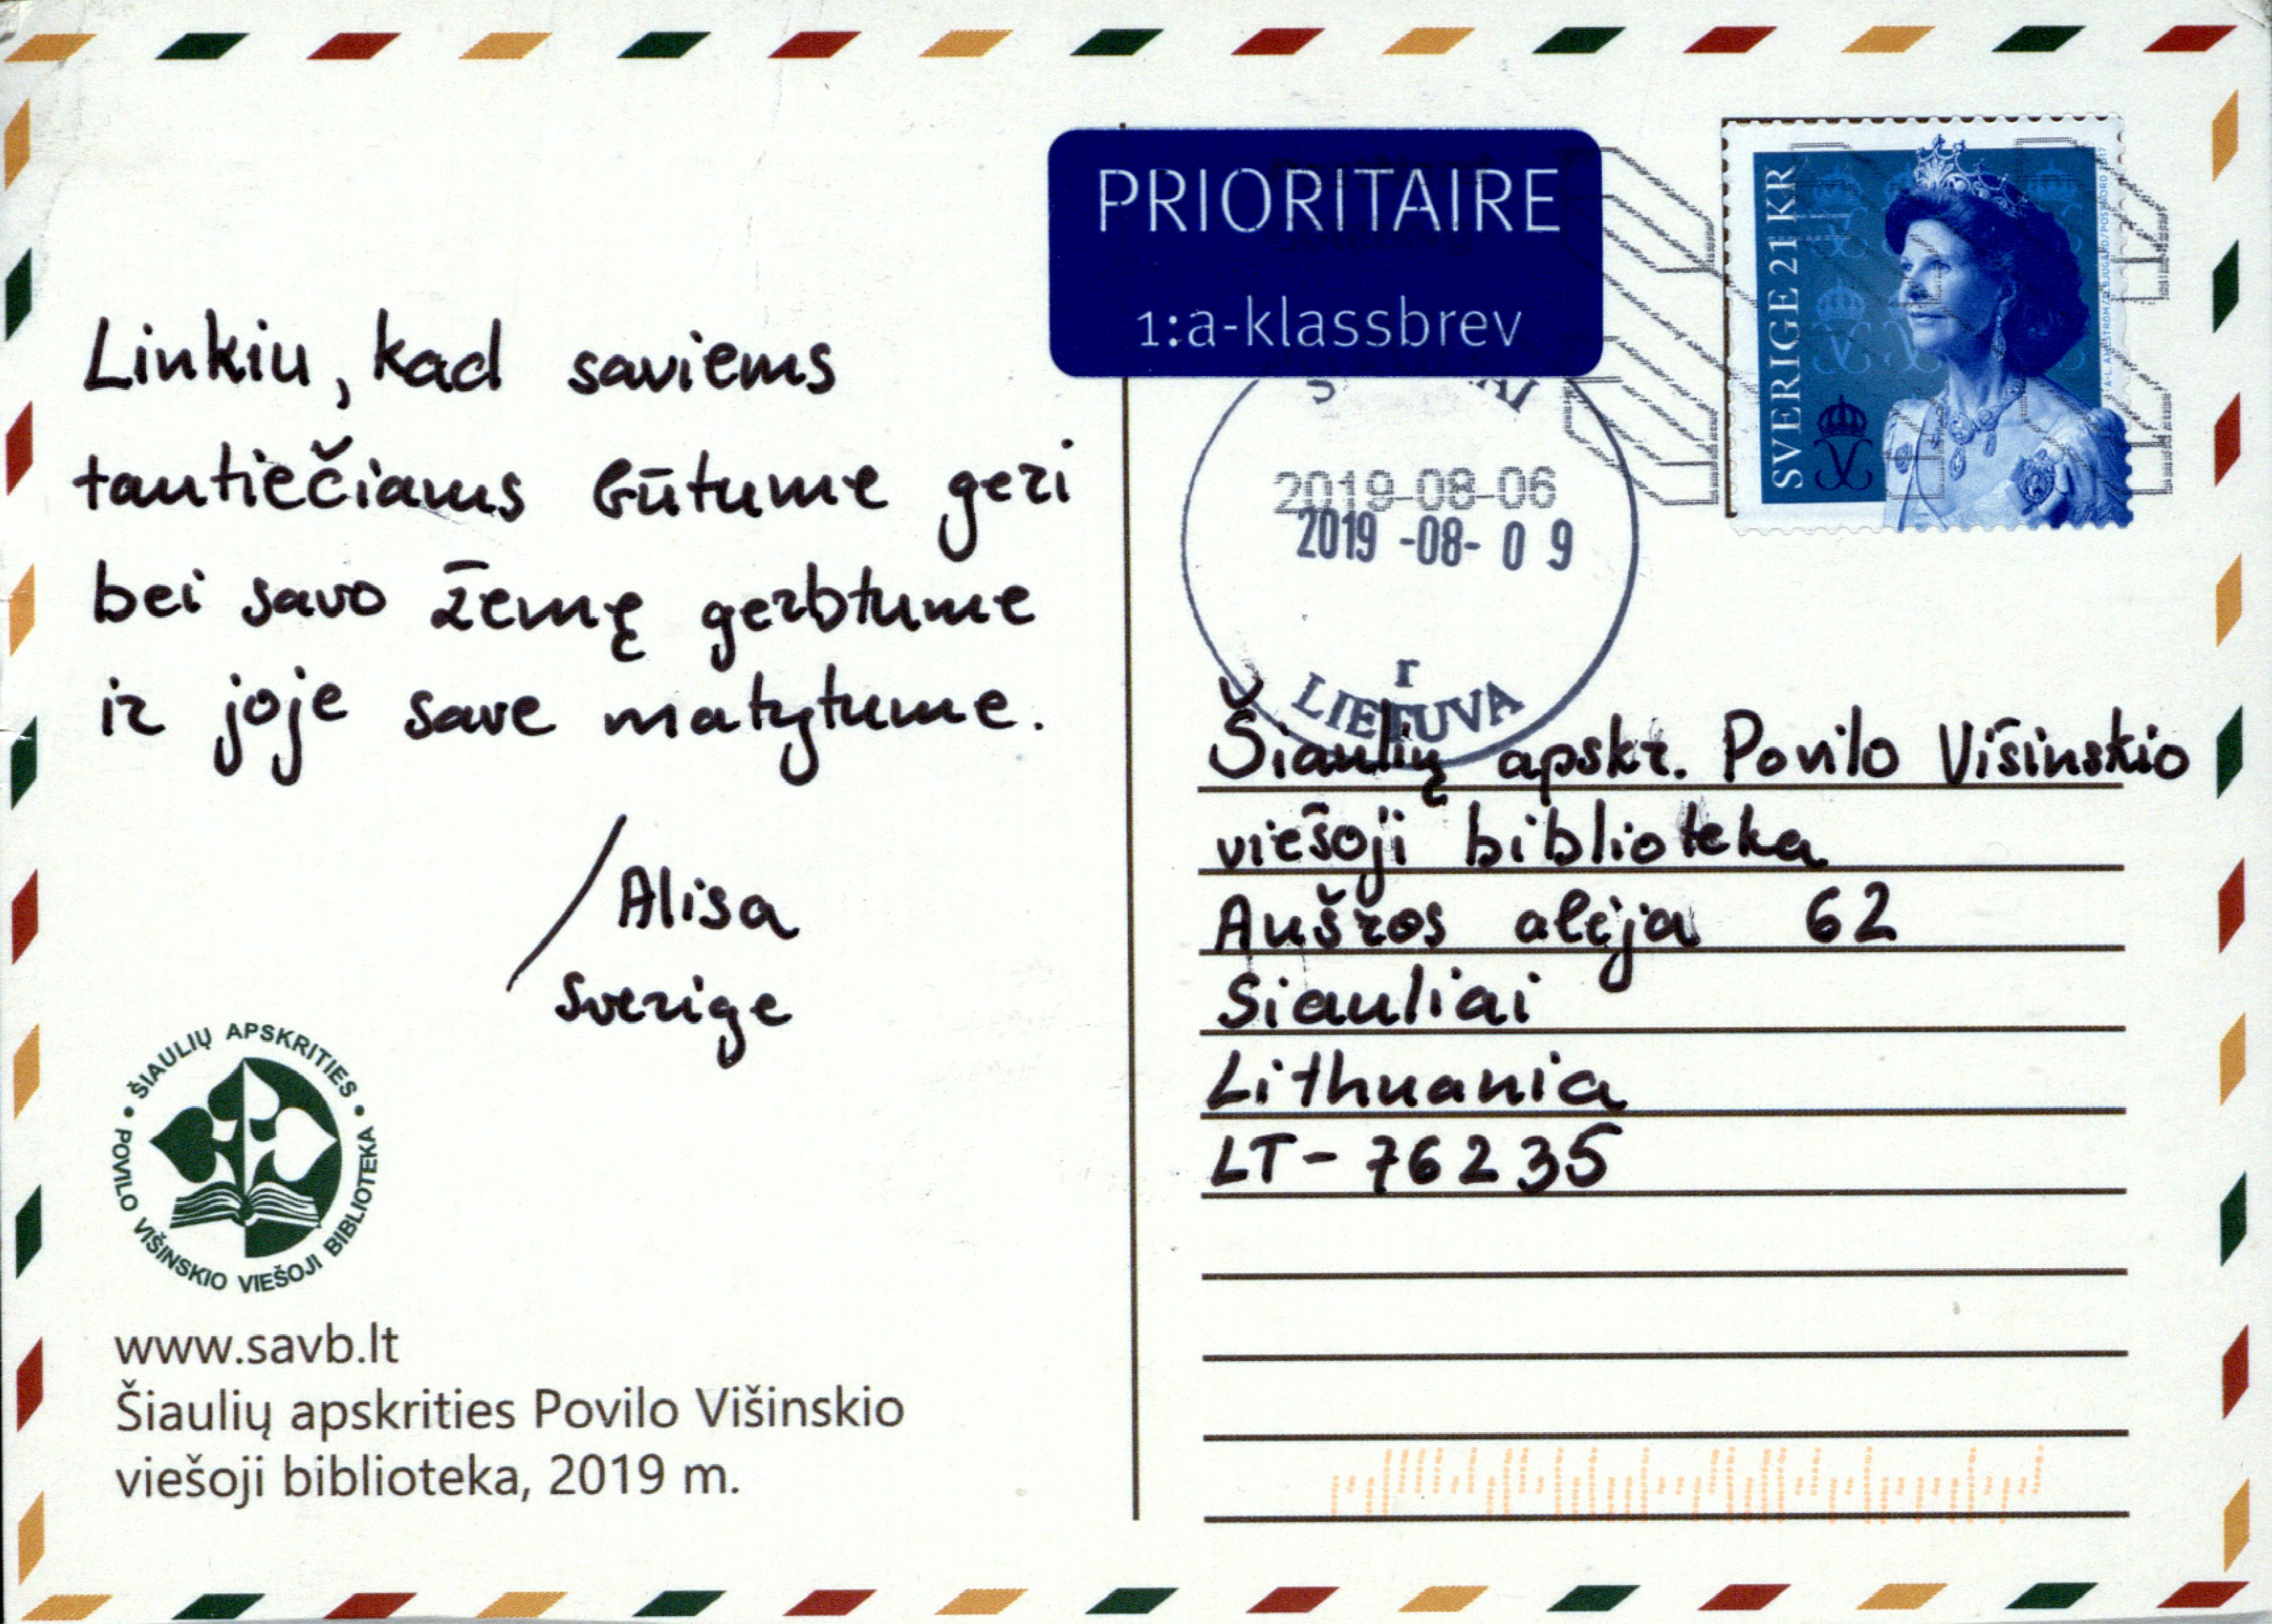 Linkiu, kad saviems
tautiečiams būtume geri
bei savo žemę gerbtume
ir joje save matytume.
/Alisa
Sverige
• ŠIAULIŲ APSKRITIES •
POVILO VIŠINSKIO VIEŠOJI BIBLIOTEKA
www.savb.lt
Šiaulių apskrities Povilo Višinskio
viešoji biblioteka, 2019 m.
PRIORITAIRE
1:a-klassbrev
SVERIGE 21 KR
2019-08-06
2019 -08- 0 9
r
LIETUVA
Šiaulių apskr. Povilo Višinskio
viešoji biblioteka
Aušros alėja 62
Siauliai
Lithuania
LT-76235